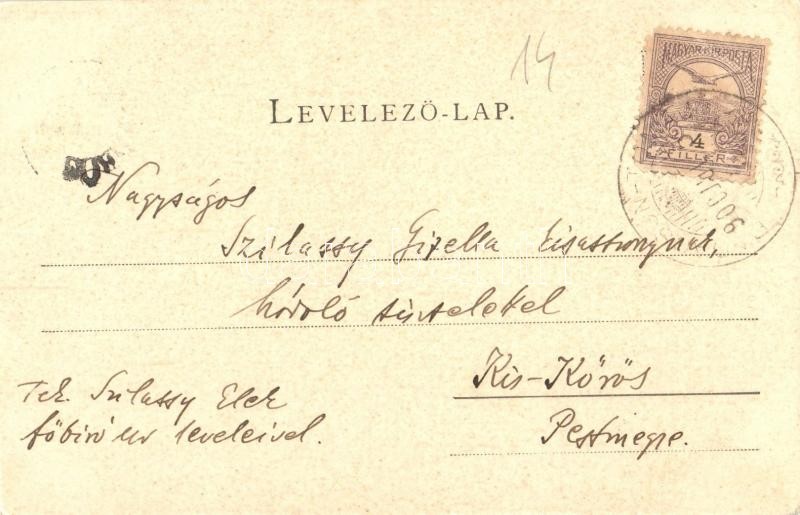 14
MAGYAR KIR. POSTA
4
FILLÉR
LEVELEZÖ-LAP.
Nagyságos
Szilassy Gizella kisasszonynak,
hódoló tisztelettel
Kis-Kőrös
Pestmegye.
Tek. Szilassy Elek
főbíró úr leveleivel.